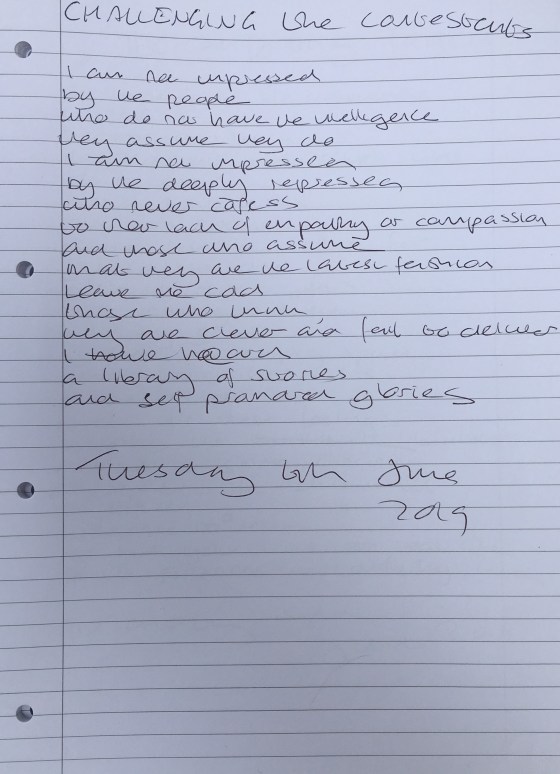 CHALLENGING the contestants
I am not impressed
by the people
who do not have the intelligence
they assume they do
I am not impressed
by the deeply repressed
who never confess
to their lack of empathy or compassion
and those who assume
that they are the latest fashion
Leave me cold
those who think
they are clever and fail to deliver
I have heard
a library of stories
and self promoted glories
Tuesday 6th June
2019